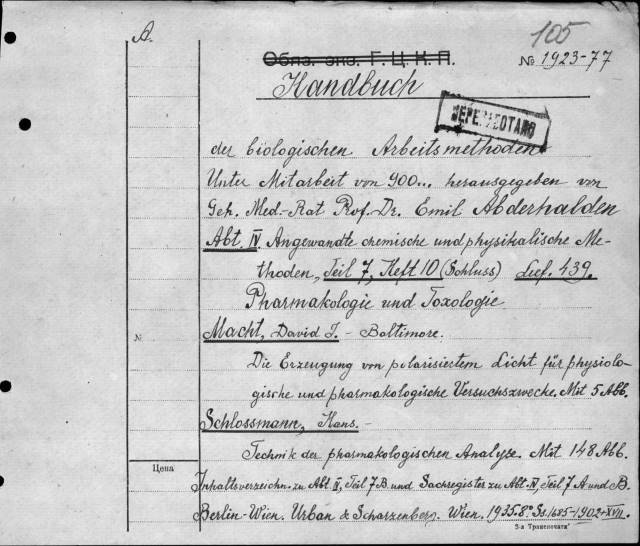 105
A.
Обяз. экз. Г. Ц. К. П.
№ 1923-77
Handbuch
ПЕРЕМЕОТАНО
der biologischen Arbeitsmethoden
Unter Mitarbeit von 900... herausgegeben von
Geh. Med.-Rat Prof. Dr. Emil Abderhalden
Abt. IV Angewandte chemische und physikalische Me-
thoden, Teil 7, Heft 10 (Schluss) Lief. 439.
Pharmakologie und Toxologie
№
Macht, David J. - Baltimore.
Die Erzeugung von polarisiertem Licht für physiolo-
gische und pharmakologische Versuchszwecke. Mit 5 Abb.
Schlossmann, Hans. -
Technik der pharmakologischen Analyse. Mit 148 Abb.
Цена
Inhaltsverzeichn. zu Abt II, Teil 7B und Sachregister zu Abt. IV, Teil 7 A und B.
Berlin-Wien. Urban & Scharzenberg. Wien. 1935. 8° Ss. 1685-1902+XVII.
3-я Транспечати